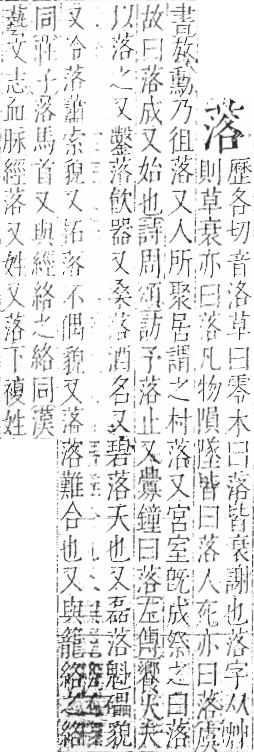 落
歷各切音洛草曰零木曰落皆衰謝也落字从艸
則草衰亦曰落凡物隕墜皆曰落人死亦曰落虞
書放勳乃徂落又人所聚居謂之村落又宮室旣成祭之曰落
故曰落成又始也詩周頌訪予落止又釁鐘曰落左傳饗大夫
以落之又鑿落飮器又桑落酒名又碧落天也又磊落魁礧貌
又冷落蕭索貌又拓落不偶貌又落落難合也又與籠絡之絡
同莊子落馬首又與經絡之絡同漢
藝文志血脈經落又姓又落下複姓